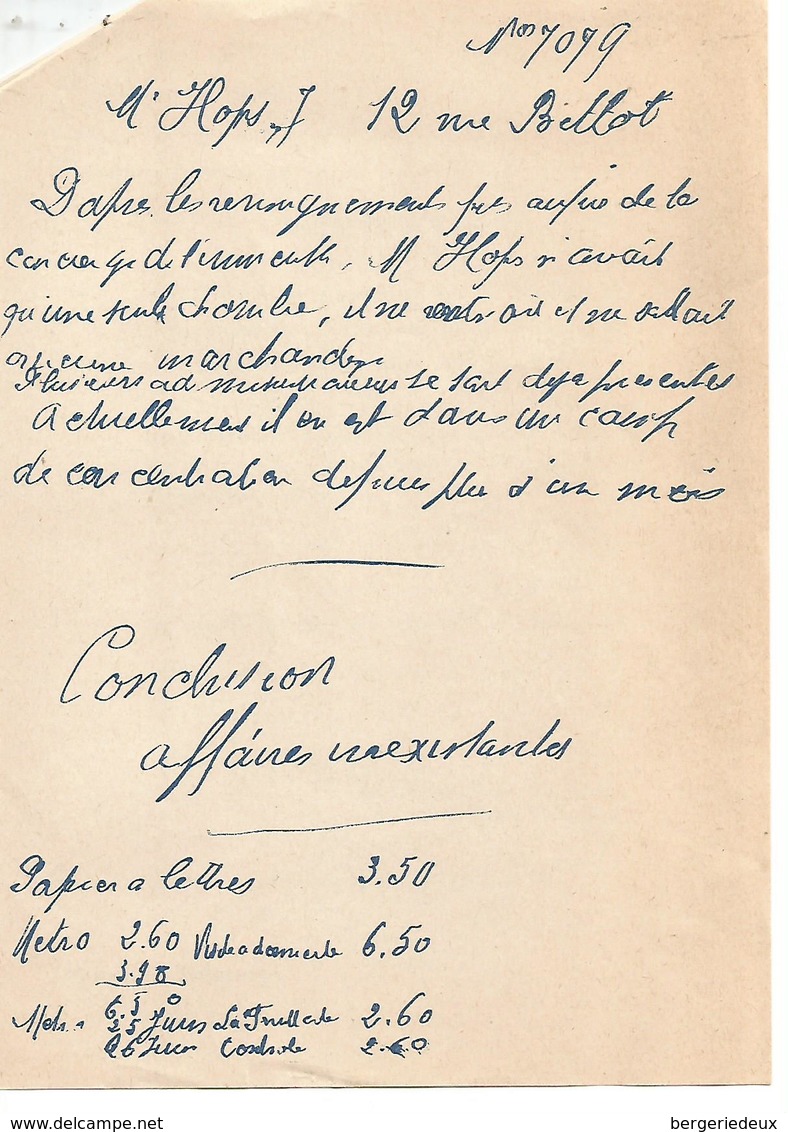 Nos 7079
Mr Hops, J 12 rue Bellot
D'apres les renseignements pris aupres de la
concierge de l'immeuble, M Hops n'avait
qu'une seule chambre, il ne rentrait et ne sortait
aucune marchandise
Plusieurs administrateurs se sont deja presentes
Actuellement il en est dans un camp
de concentration depuis plus d'un mois
Conclusion
affaires inexistantes
Papier a lettres 3.50
Metro 2.60 Visite a domicile 6.50
3.90
6.50
Metro 25 Juin La 2.60
26 Juin Controle 2.60
www.delcampe.net
bergeriedeux